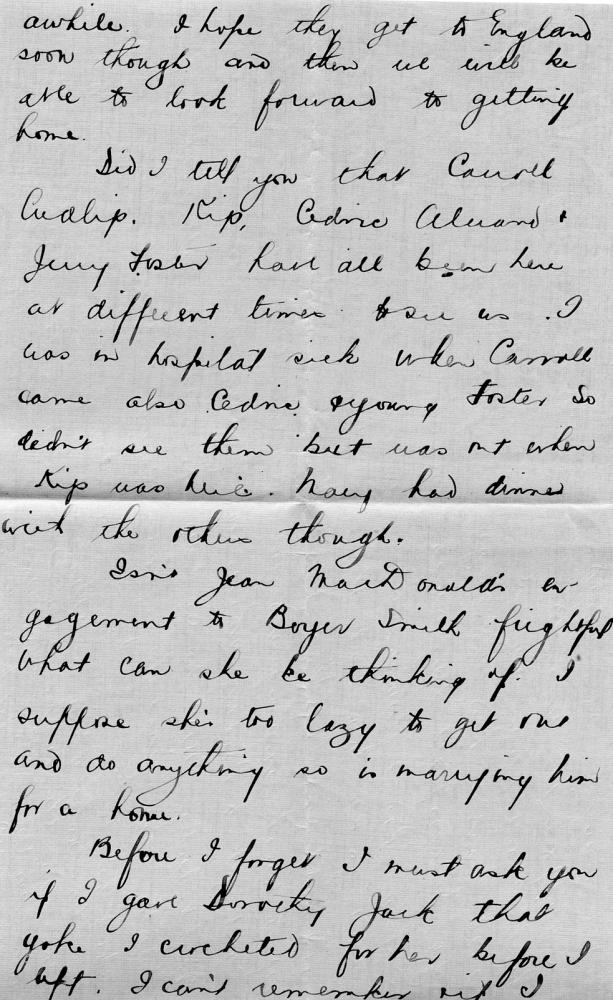 awhile. I hope they get to England
soon though and then we will be
able to look forward to getting
home.
Did I tell you that Carroll
Cudlip, Kip, Cedric Alward &
Jerry Foster have all been here
at different times to see us. I
was in hospital sick when Carroll
came also Cedric & young Foster So
didn't see them but was out when
Kip was here. Mary had dinner
with the others though.
Isn't Jean MacDonald's en-
gagement to Boyer Smith frightful
what can she be thinking of. I
suppose she's too lazy to get out
and do anything so is marrying him
for a home.
Before I forget I must ask you
if I gave Dorothy Jack that
yoke I crocheted for her before I
left. I can't remember did I